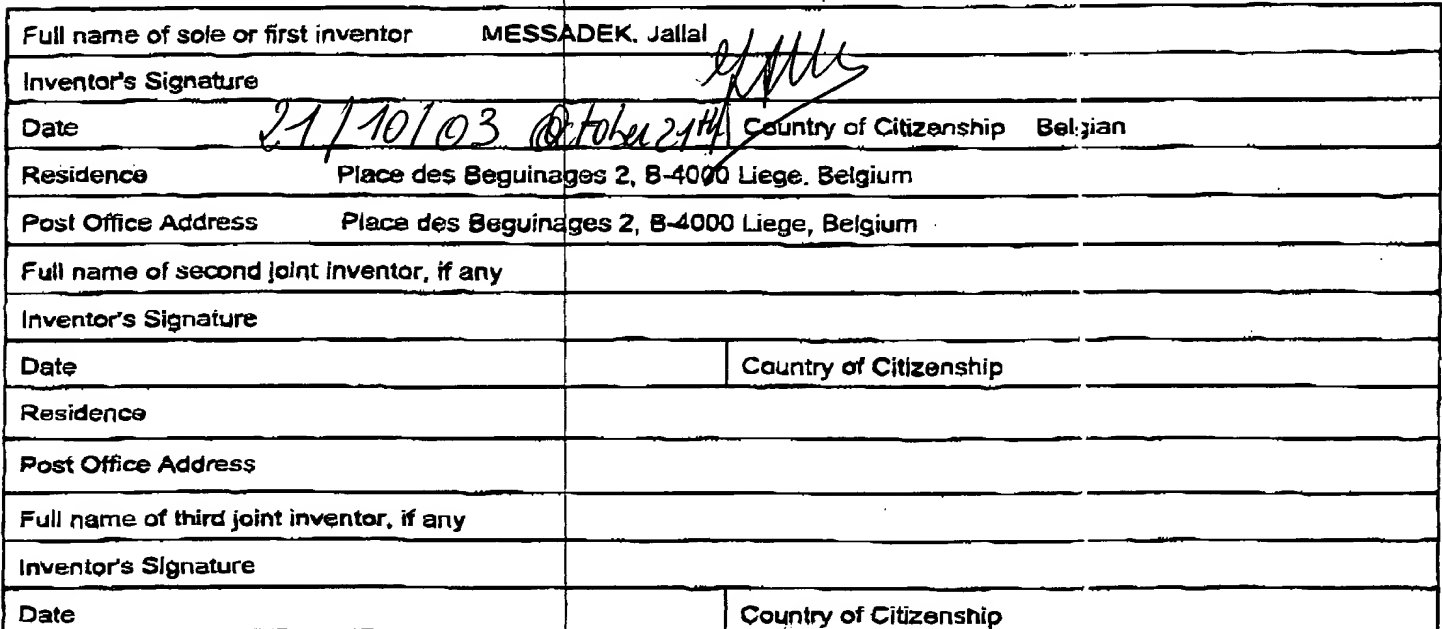 Full name of sole or first inventor MESSADEK, Jallal
Inventor's Signature
Date 21/10/03 October 21th Country of Citizenship Belgian
Residence Place des Beguinages 2, B-4000 Liege, Belgium
Post Office Address Place des Beguinages 2, B-4000 Liege, Belgium
Full name of second joint inventor, if any
Inventor's Signature
Date Country of Citizenship
Residence
Post Office Address
Full name of third joint inventor, if any
Inventor's Signature
Date Country of Citizenship